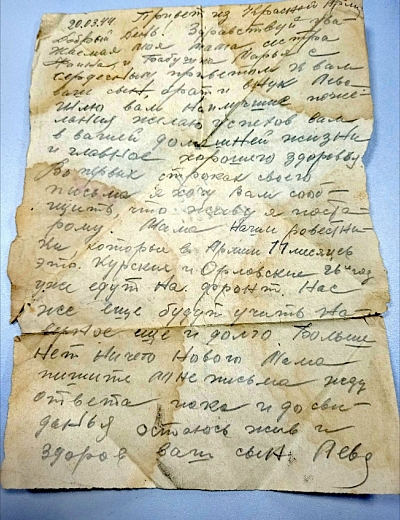 20.03.44. Привет из Красной Армии
Добрый день. Здравствуй ува
жаемая моя мама сестра
и бабушка Марья с
сердесным приветом к вам
ваш сын брат и внук Лева
шлю вам наилучшие поже-
лания желаю успехов вам
в вашей домашней жизни
и главное хорошего здоровья.
Во первых строках своего
письма я хочу вам сооб-
щить, что живу я по ста-
рому. Мама наши ровесни-
ки, которые в Армии 11 месяцев
это. Курские и Орловские
уже едут на фронт. Нас
же еще будут учить на
верное еще и долго. Больше
нет ничего нового Мама
пишите мне письма жду
ответа пока и до сви-
данья остаюсь жив и
здоров ваш сын. Лева